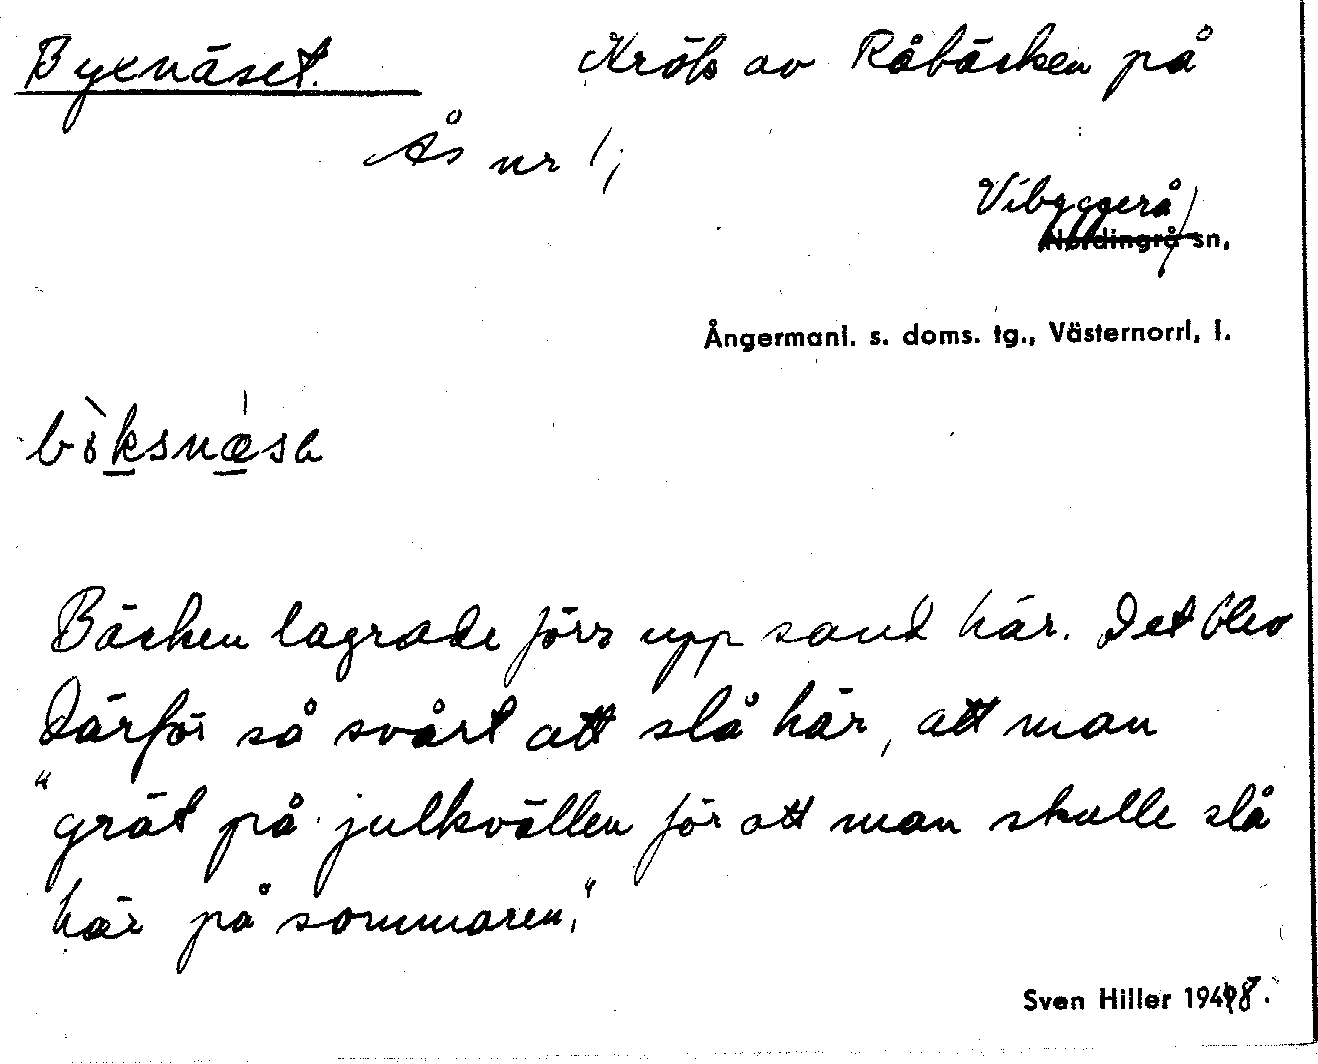 Byxnäset. Krök av Råbäcken på
Ås nr 1,
Vibyggerå
Nordingrå sn,
Ångermanl. s. doms. tg., Västernorrl, l.
böksnäsa
Bäcken lagrade förr upp sand här. Det blev
därför så svårt att slå här, att man
"grät på julkvällen för att man skulle slå
här på sommaren."
Sven Hiller 1948.